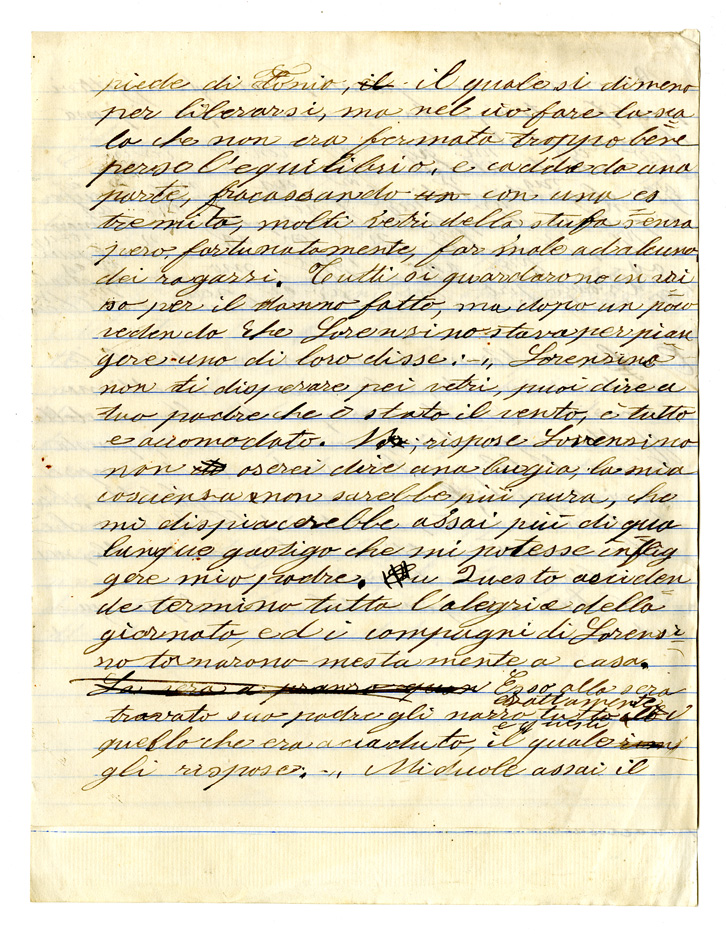 piede di Tonio, il il quale si dimeno
per liberarsi, ma nel cio fare la sca
la che non era fermata troppo bene
perse l'equilibrio, e cadde da una
parte, fracassando un con una es
tremita, molti vetri della stufa senza
pero, fortunatamente, far male ad alcuno
dei ragazzi. Tutti si guardarono in vi
so per il danno fatto, ma dopo un poco
vedendo che Lorensino stava per pian
gere uno di loro disse: -„ Lorensino
non ti disperare pei vetri, puoi dire a
tuo padre che è stato il vento, e tutto
e accomodato. No, rispose Lorensino
non oserei dire una bugia, la mia
cosciensa non sarebbe più pura, che
mi dispiacerebbe assai più di qua
lunque gastigo che mi potesse inflig
gere mio padre. Questo aciden
de termino tutta l'alegria della
giornata, ed i compagni di Lorensi
no tornarono mestamente a casa.
La sera a pranzo quan Esso alla sera
esattamente
travato suo padre gli narrò tutto
e questi
quello che era aciaduto, il quale
gli rispose: -„ Mi duole assai il